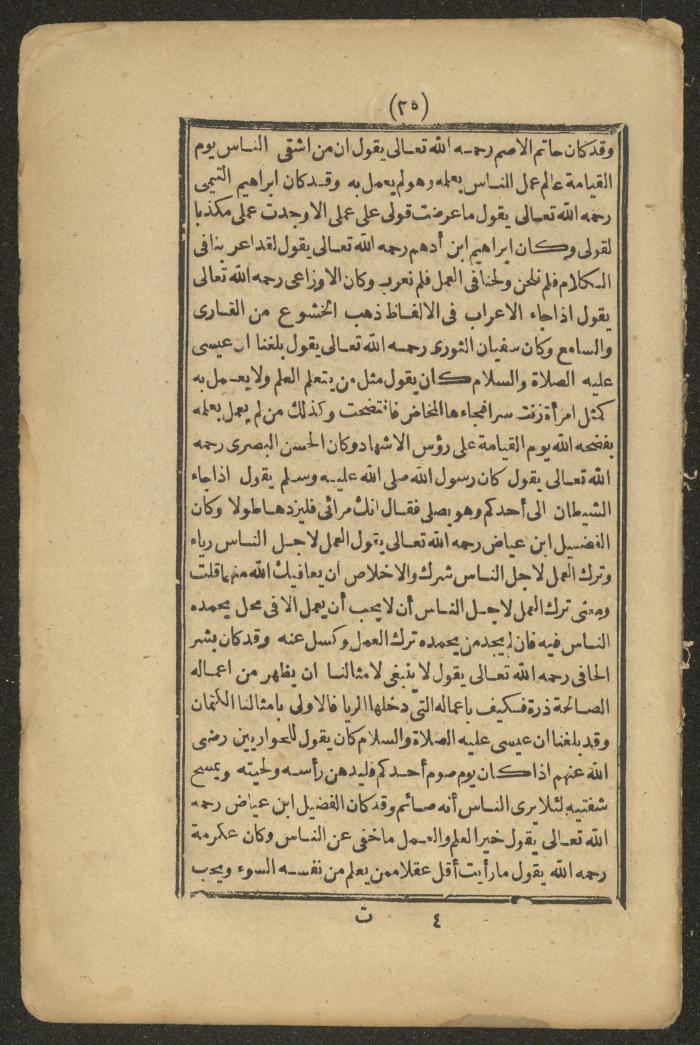 (٢٥)
وقد كان حاتم الاصم رحمه الله تعالى يقول ان من اشقى الناس يوم
القيامة عالم عمل الناس بعلمه وهو لم يعمل به وقد كان ابراهيم التيمى
رحمه الله تعالى يقول ما عرضت قولى على عملى الا وجدت عملى مكذبا
لقولى وكان ابراهيم ابن أدهم رحمه الله تعالى يقول لقد اعربنا فى
الكلام فلم نلحن ولحنا فى العمل فلم نعرب وكان الاوزاعى رحمه الله تعالى
يقول اذا جاء الاعراب فى الالفاظ ذهب الخشوع من القارى
والسامع وكان سفيان الثورى رحمه الله تعالى يقول بلغنا ان عيسى
عليه الصلاة والسلام كان يقول مثل من يتعلم العلم ولا يعمل به
كمثل امرأة زنت سرا فجاءها المخاض فافتضحت وكذلك من لم يعمل بعلمه
يفضحه الله يوم القيامة على رؤس الاشهاد وكان الحسن البصرى رحمه
الله تعالى يقول كان رسول الله صلى الله عليه وسلم يقول اذا جاء
الشيطان الى أحدكم وهو يصلى فقال انك مرائى فليزدها طولا وكان
الفضيل ابن عياض رحمه الله تعالى يقول العمل لاجل الناس رياء
وترك العمل لاجل الناس شرك والاخلاص ان يعافيك الله منهما قلت
ومعنى ترك العمل لاجل الناس أن لا يحب أن يعمل الا فى محل يحمده
الناس فيه فان لم يجد من يحمده ترك العمل وكسل عنه وقد كان بشر
الحافى رحمه الله تعالى يقول لا ينبغى لامثالنا ان يظهر من اعماله
الصالحة ذرة فكيف باعماله التى دخلها الريا فالاولى بامثالنا الكتمان
وقد بلغنا ان عيسى عليه الصلاة والسلام كان يقول للحواريين رضى
الله عنهم اذا كان يوم صوم أحدكم فليدهن رأسه ولحيته ويمسح
شفتيه لئلا يرى الناس أنه صائم وقد كان الفضيل ابن عياض رحمه
الله تعالى يقول خير العلم والعمل ما خفى عن الناس وكان عكرمة
رحمه الله يقول ما رأيت أقل عقلا ممن يعلم من نفسه السوء ويحب
٤ ت